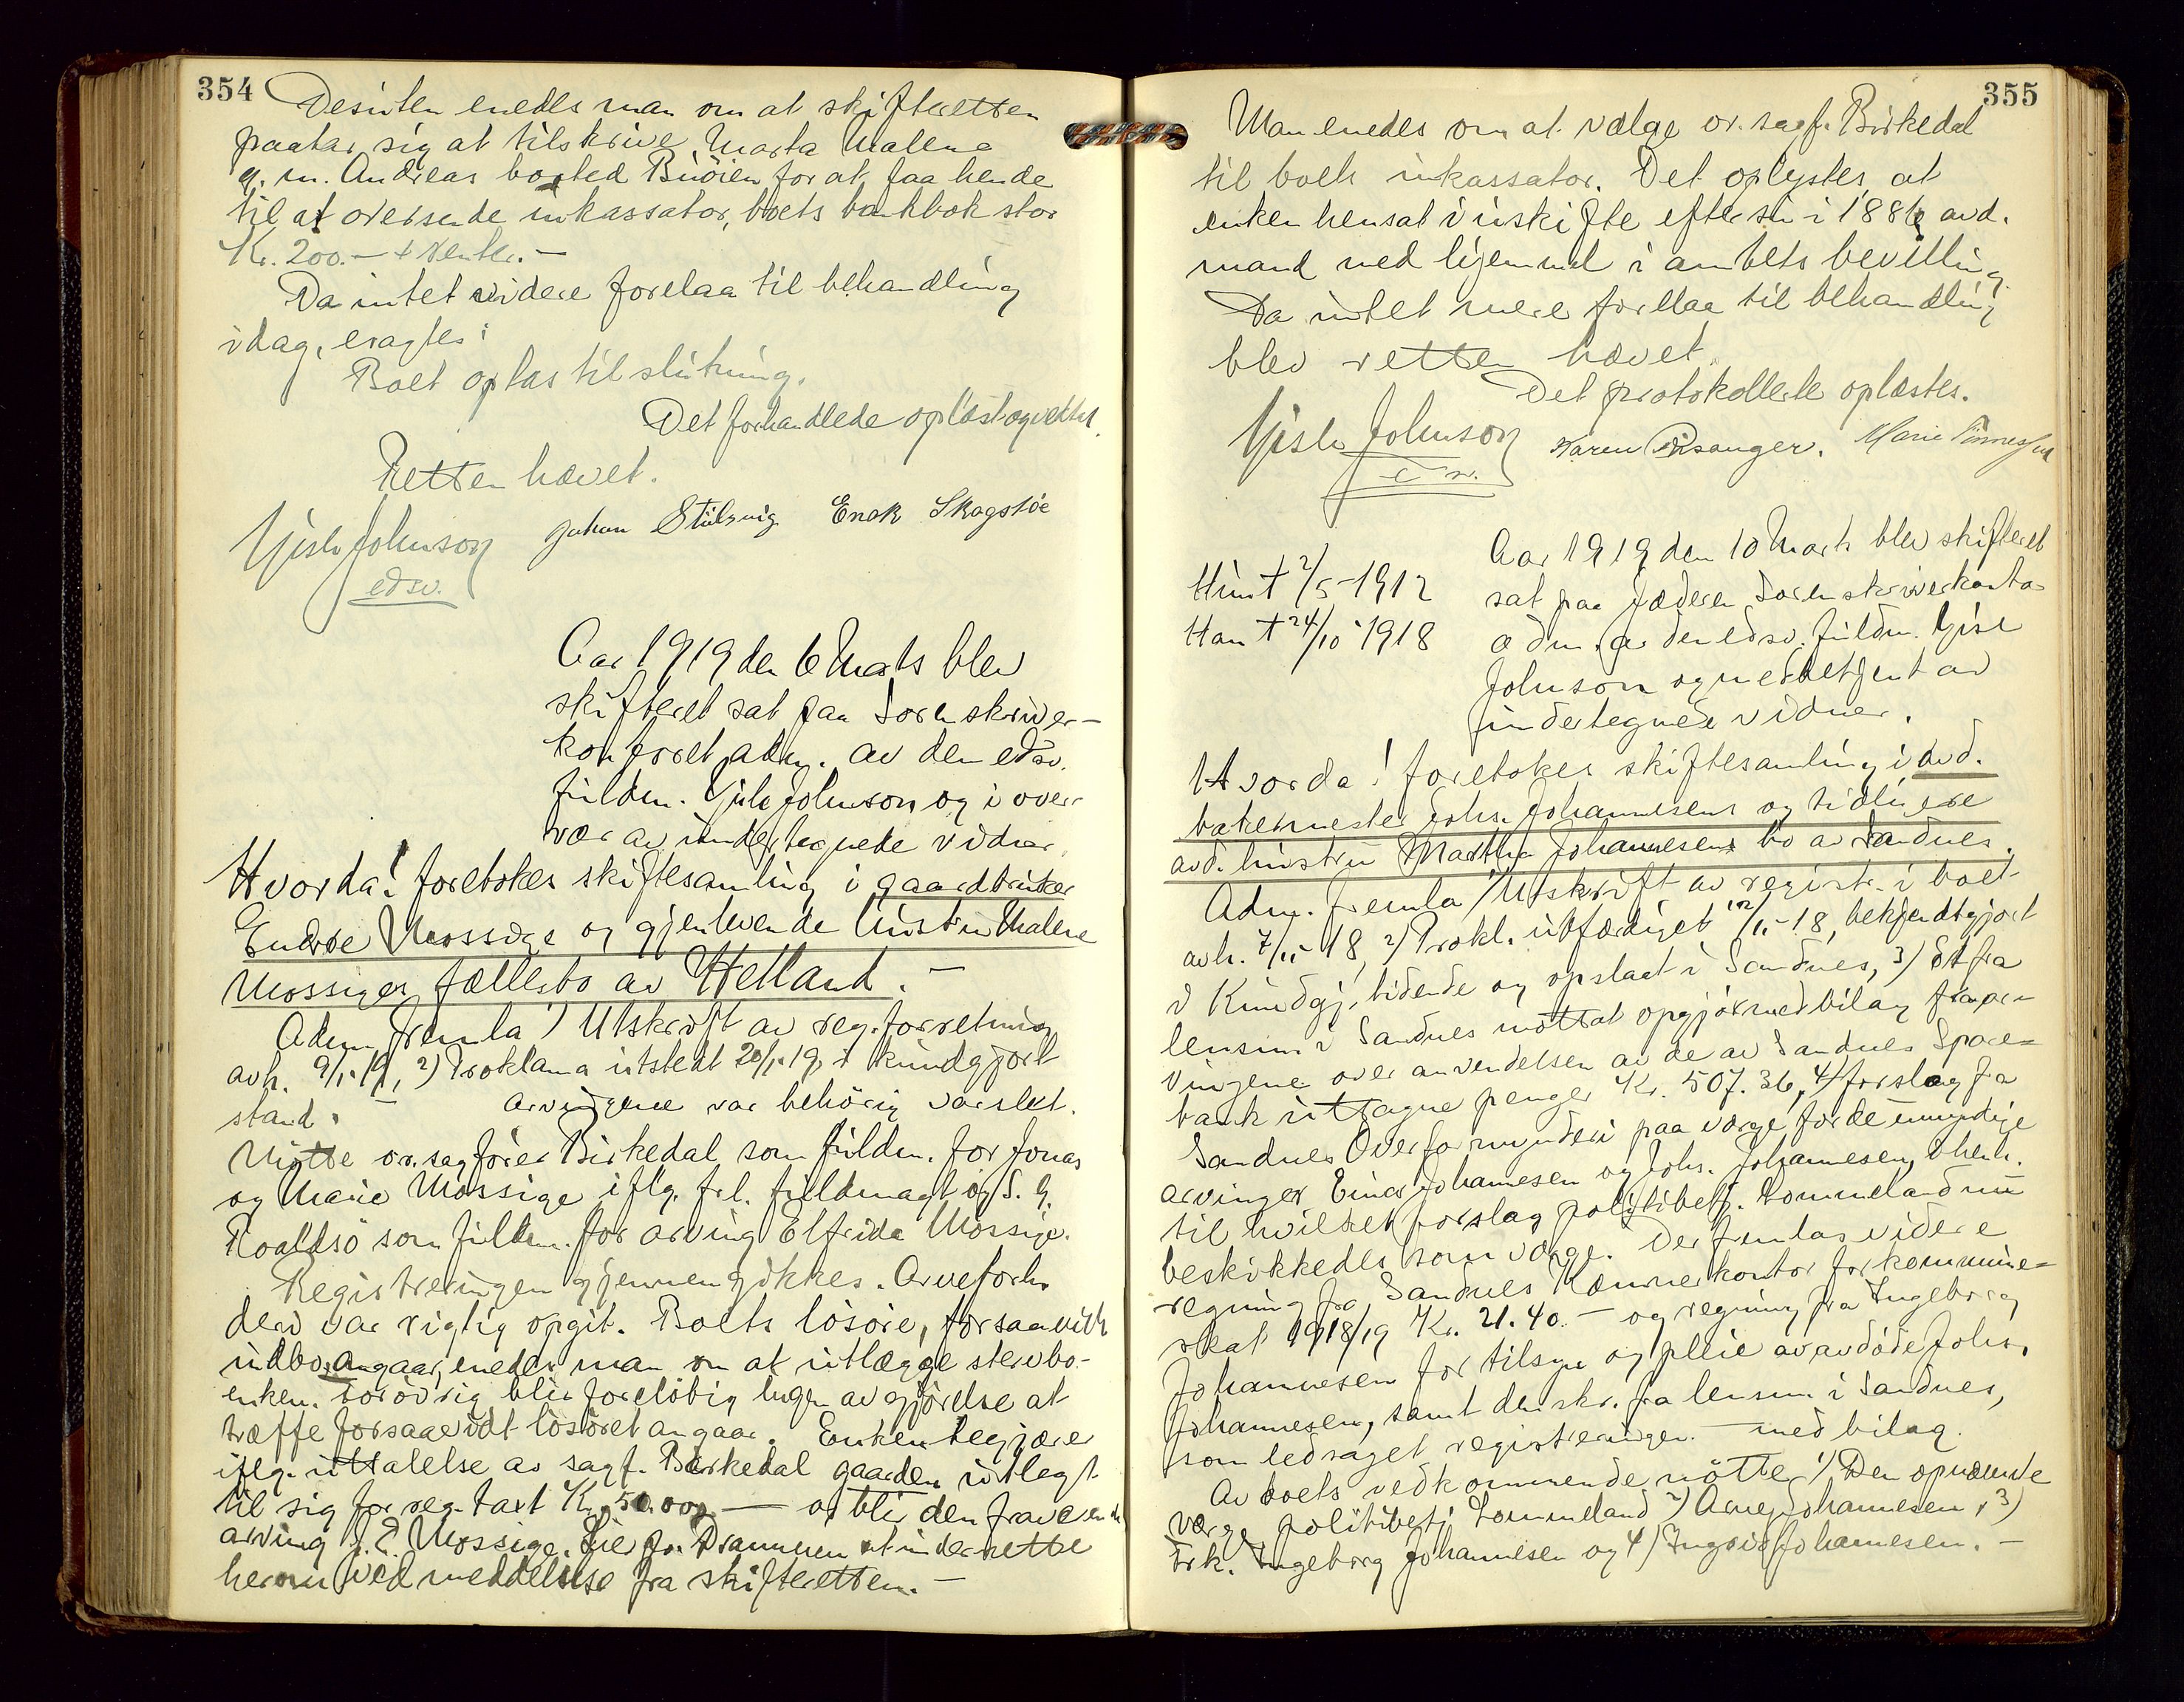 354
Desuten enedes man om at skifteretten
paatar sig at tilskrive Marta Malena
g. m. Andreas bosted Buöien for at faa hende
til at oversende inkassator, boets bankbok stor
Kr. 200.- + renter. -
Da intet videre forelaa til behandling
idag, eragtes:
Boet optas til slutning.
Det forhandlede oplæst og vedtat.
Retten hævet.
Gisle Johnson Johan Stülsvig Enok Skagstöe
edsv.
Aar 1919 den 6 Marts blev
skifteret sat paa Sorenskriver-
kontoret adm. av den edsv.
fuldm. Gisle Johnson og i over-
vær av undertegnede vidner
Hvorda! foretokes skiftesamling i gaardbruker
Endre Mossige og gjenlevende hustru Malene
Mossiges fællesbo av Hetland. -
Adm. fremla 1) Utskrift av reg. forretning
avh. 9/1-19, 2) Proklama utstedt 20/1-19, i kundgjort
stand. - Arvingene var behörig varslet.
Mötte or. sagförer Birkedal som fuldm. for Jonas
og Marie Mossige iflg. frl. fuldmagt og S. G.
Roaldsö som fuldm. for arving Elfrida Mossige.
Registreringen gjennemgikkes. Arveforhol-
derne var rigtig opgit. Boets lösöre, forsaavidt
indbo angaar, enedes man om at utlægge stervbo-
enken. Forövrig blir forelöbig ingen avgjörelse at
træffe forsaavidt lösöret angaar. Enken begjærer
iflg. uttalelse av sagf. Birkedal gaarden utlagt
til sig for reg. taxt Kr. 50.000 - og blir den fraværende
arving J. E. Mossige, Lier pr. Drammen at underrette
herom ved meddelelse fra skifteretten. -
355
Man enedes om at vælge or. sagf. Birkedal
til boets inkassator. Det oplystes at
enken hensat i uskifte efter sin i 1886 avd.
mand med hjemmel i amtets bevilling.
Da intet mere forelaa til behandling
blev retten hævet.
Det protokollerte oplæstes.
Gisle Johnson Karen Risanger. Marie Tönnessen
edsv.
Hun † 2/5-1912
Han † 24/10-1918
Aar 1919 den 10 Marts blev skifteret
sat paa Jæderen Sorenskriverkontor
adm. av den edsv. fuldm. Gisle
Johnson og medbetjent av
undertegnede vidner.
Hvorda! foretokes skiftesamling i avd.
bakermester Johs. Johannesens og tidligere
avd. hustru Martha Johannesens bo av Sandnes.
Adm. fremla 1) Utskrift av registr. i boet
avh. 7/11-18, 2) Prokl. utfærdiget 12/11-18, bekjendtgjort
i Kundgj. tidende og opslaat i Sandnes, 3) Et fra
lensm. i Sandnes mottat opgjör med bilag fra ar-
vingene over anvendelsen av de av Sandnes Spare-
bank uttagne penger Kr. 507.36, 4) forslag fra
Sandnes Overformynderi paa værge for de umyndige
arvinger Einar Johannesen og Johs. Johannesen, i henh.
til hvilket forslag politibetj. Lommeland nu
beskikkedes som værge. Der fremlas videre
regning fra Sandnes Kæmnerkontor for kommune-
skat 1918/19 Kr. 21.40. - og regning fra Ingeborg
Johannesen for tilsyn og pleie av avdöde Johs.
Johannesen, samt den skr. fra lensm. i Sandnes,
som ledsaget registreringen - med bilag.
Av boets vedkommende mötte 1) Den opnævnte
værge politibetj. Lommeland 2) Arne Johannesen, 3)
Frk. Ingeborg Johannesen og 4) Ingvid Johannesen. -